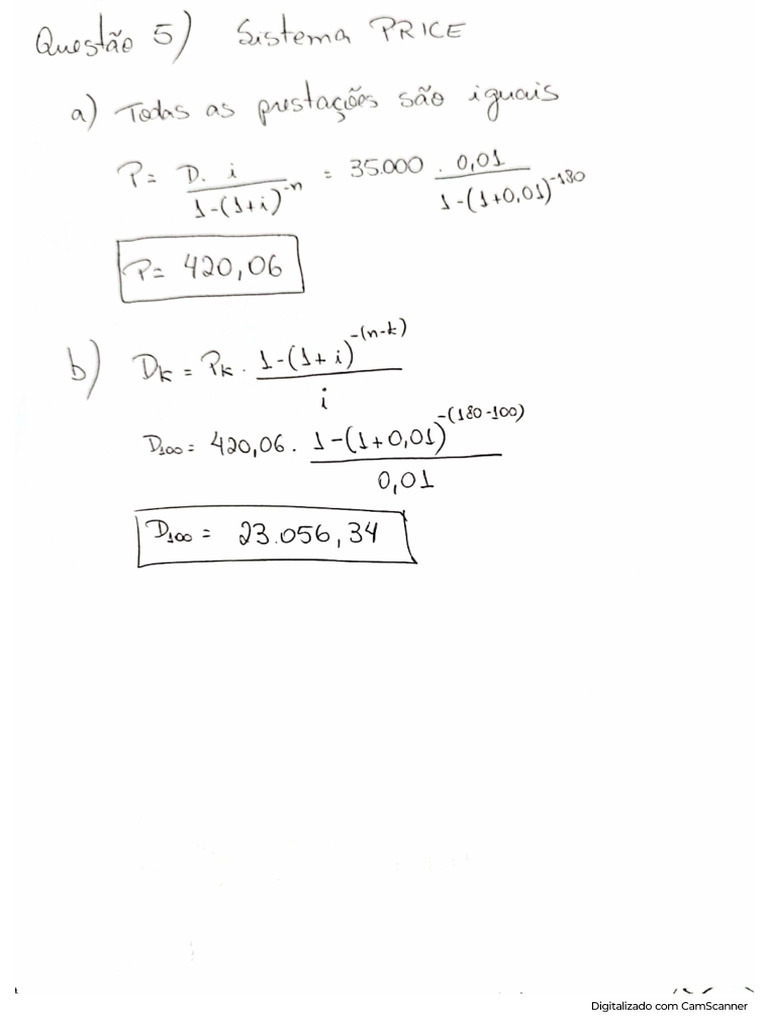 Questão 5) Sistema PRICE
a) Todas as prestações são iguais
P = D. i / 1-(1+i)^-n = 35.000 . 0,01 / 1-(1+0,01)^-180
P = 420,06
b) Dk = Pk . 1-(1+i)^-(n-k) / i
D100 = 420,06 . 1-(1+0,01)^-(180-100) / 0,01
D100 = 23.056,34
Digitalizado com CamScanner